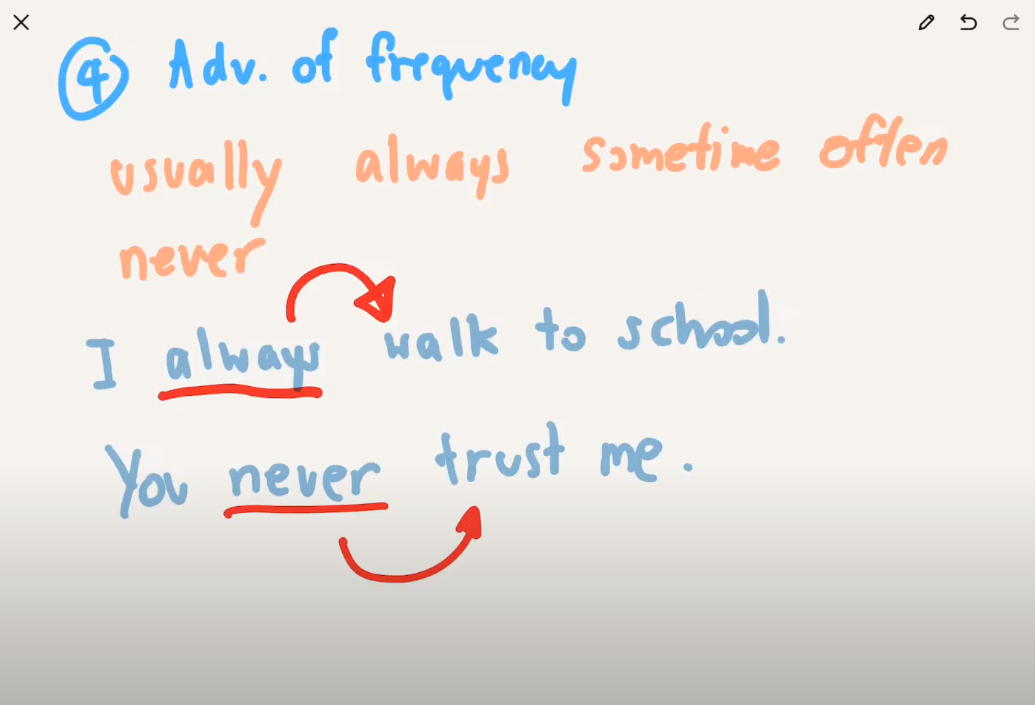 ④ Adv. of frequency
usually always sometime often
never
I always walk to school.
You never trust me.